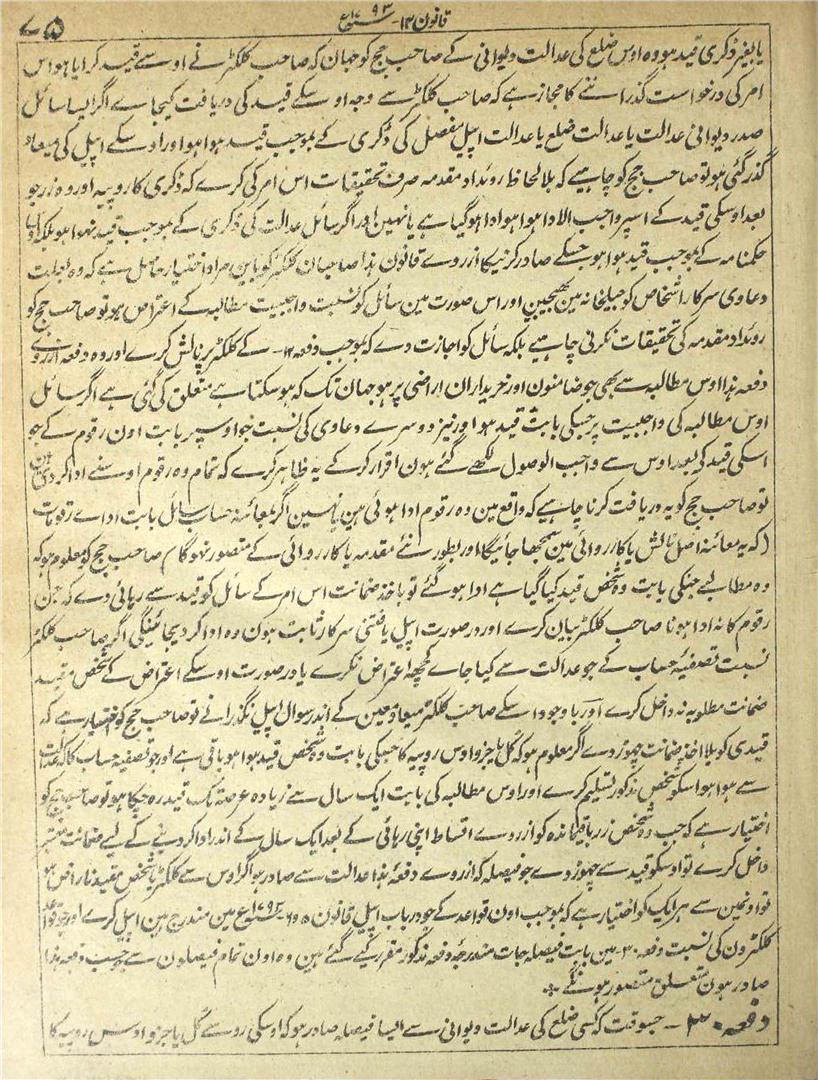 قانون ۱۴ - سنہ ۱۷۹۳ع
۷۵
یا بغیر ڈکری قید ہو وہ اوس ضلع کی عدالت دیوانی کے صاحب جج کو جہان کہ صاحب کلکٹر نے اوسے قید کرایا ہو اس
امر کی درخواست گذراننے کا مجاز ہے کہ صاحب کلکٹر سے وجہ اوسکے قید کی دریافت کیجاے اگر ایسا سائل
صدر دیوانی عدالت یا عدالت ضلع یا عدالت اپیل مفصل کی ڈکری کے بموجب قید ہوا ہو اور اوسکے اپیل کی میعاد
گذر گئی ہو تو صاحب جج کو چاہیے کہ بلا لحاظ روئداد مقدمہ صرف تحقیقات اس امر کی کرے کہ ڈکری کا روپیہ اور وہ زر جو
بعد اوسکی قید کے اسپر واجب الادا ہوا ہو ادا ہو گیا ہے یا نہین اور اگر سائل عدالت کی ڈکری کے بموجب قید نہوا ہو بلکہ
حکمنامہ کے بموجب قید ہوا ہو جسکے صادر کرنیکا ازروے قانون ہذا صاحبان کلکٹر کو باین مراد اختیار حاصل ہے کہ وہ بعلت
دعاوی سرکار اشخاص کو جیلخانہ مین بھیجین اور اس صورت مین سائل کو نسبت واجبیت مطالبہ کے اعتراض ہو تو صاحب جج کو
روئداد مقدمہ کی تحقیقات نکرنی چاہیے بلکہ سائل کو اجازت دے کہ بموجب دفعہ ۱۲- کے کلکٹر پر نالش کرے اور وہ دفعہ ازروی
دفعہ ہذا اوس مطالبہ سے بھی جو ضامنون اور خریداران اراضی پر ہو جہان تک کہ ہو سکتا ہے متعلق کی گئی ہے اگر سائل
اوس مطالبہ کی واجبیت پر جسکی بابت قید ہو اور نیز دوسرے دعاوی کی نسبت جو اوسپر بابت اون رقوم کے جو
اسکی قید کی بعد اوس سے واجب الوصول لکھے گئے ہون اقرار کرکے یہ ظاہر کرے کہ تمام وہ رقوم اوسنے ادا کر دی ہین
تو صاحب جج کو یہ دریافت کرنا چاہیے کہ واقع مین وہ رقوم ادا ہوئی ہین یا نہین اگر بمعائنہ حساب سائل بابت اداے رقومات
(کہ یہ معائنہ اصل نالش یا کارروائی مین سمجھا جائیگا اور بطور نئے مقدمہ یا کارروائی کے متصور نہوگا) صاحب جج کو معلوم ہو کہ
وہ مطالبے جنکی بابت وہ شخص قید کیا گیا ہے ادا ہو گئے تو باخذ ضمانت اس امر کے سائل کو قید سے رہائی دے کہ جن
رقوم کا نہ ادا ہونا صاحب کلکٹر بیان کرے اور در صورت اپیل یافتنی سرکار ثابت ہون وہ ادا کر دیجائینگی اگر صاحب کلکٹر
نسبت تصفیہ حساب کے جو عدالت سے کیا جاے کچھہ اعتراض نکرے یا در صورت اوسکے اعتراض کے شخص مقید
ضمانت مطلوبہ نہ داخل کرے اور با وجود اسکے صاحب کلکٹر میعاد معین کے اندر سوال اپیل نگذرانے تو صاحب جج کو اختیار ہے کہ
قیدی کو بلا اخذ ضمانت چھوڑ دے اگر معلوم ہو کہ کُل یا جزو اوس روپیہ کا جسکی بابت وہ شخص قید ہوا ہو باقی ہے اور جو تصفیہ حساب کا کہ عدالت
سے ہوا ہو اسکو شخص مذکور تسلیم کرے اور اوس مطالبہ کی بابت ایک سال سے زیادہ عرصہ تک قید رہ چکا ہو تو صاحب جج کو
اختیار ہے کہ جب وہ شخص زر باقیماندہ کو ازروے اقساط اپنی رہائی کے بعد ایک سال کے اندر ادا کر دینے کے لیے ضمانت معتبر
داخل کرے تو اوسکو قید سے چھوڑ دے جو فیصلہ کہ ازروے دفعہ ہذا عدالت سے صادر ہو اگر اوس سے کلکٹر یا شخص مقید ناراض ہو
تو اونمین سے ہر ایک کو اختیار ہے کہ بموجب اون قواعد کے جو در باب اپیل قانون ۵ و ۶ سنہ ۱۷۹۳ع مین مندرج ہین اپیل کرے اور جو قواعد
کلکٹرون کی نسبت دفعہ ۳۰- مین بابت فیصلہ جات مندرجہ دفعہ مذکور مقرر کیے گئے ہین وہ اون تمام فیصلون سے جو حسب دفعہ ہذا
صادر ہون متعلق متصور ہونگے
دفعہ ۳۰- جسوقت کہ کسی ضلع کی عدالت دیوانی سے ایسا فیصلہ صادر ہو کہ اوسکی رو سے کُل یا جزو اوس روپیہ کا